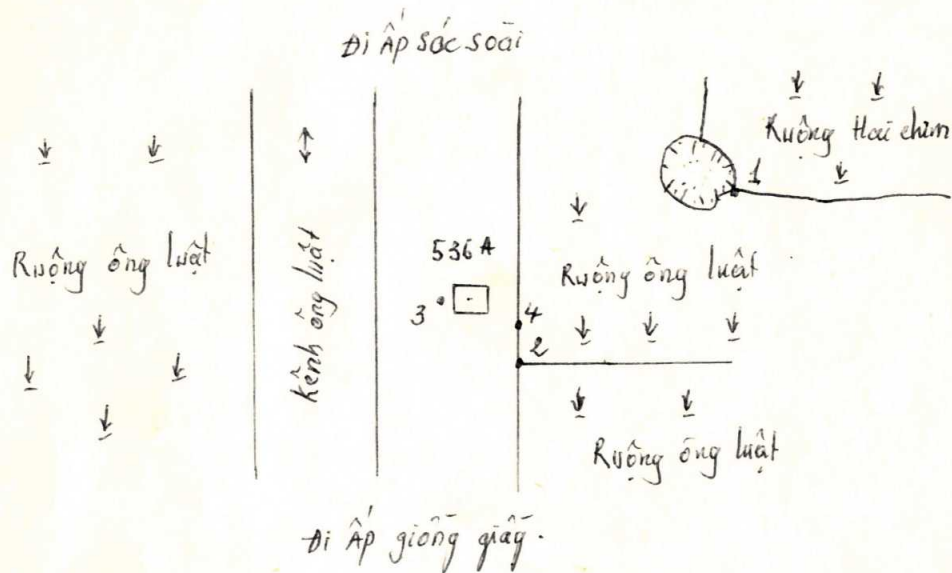 Đi Ấp Sóc Soài
Ruộng Hai chìm
1
536 A
Ruộng ông luật
Kênh ông luật
Ruộng ông luật
3
4
2
Ruộng ông luật
Đi Ấp giồng giây.